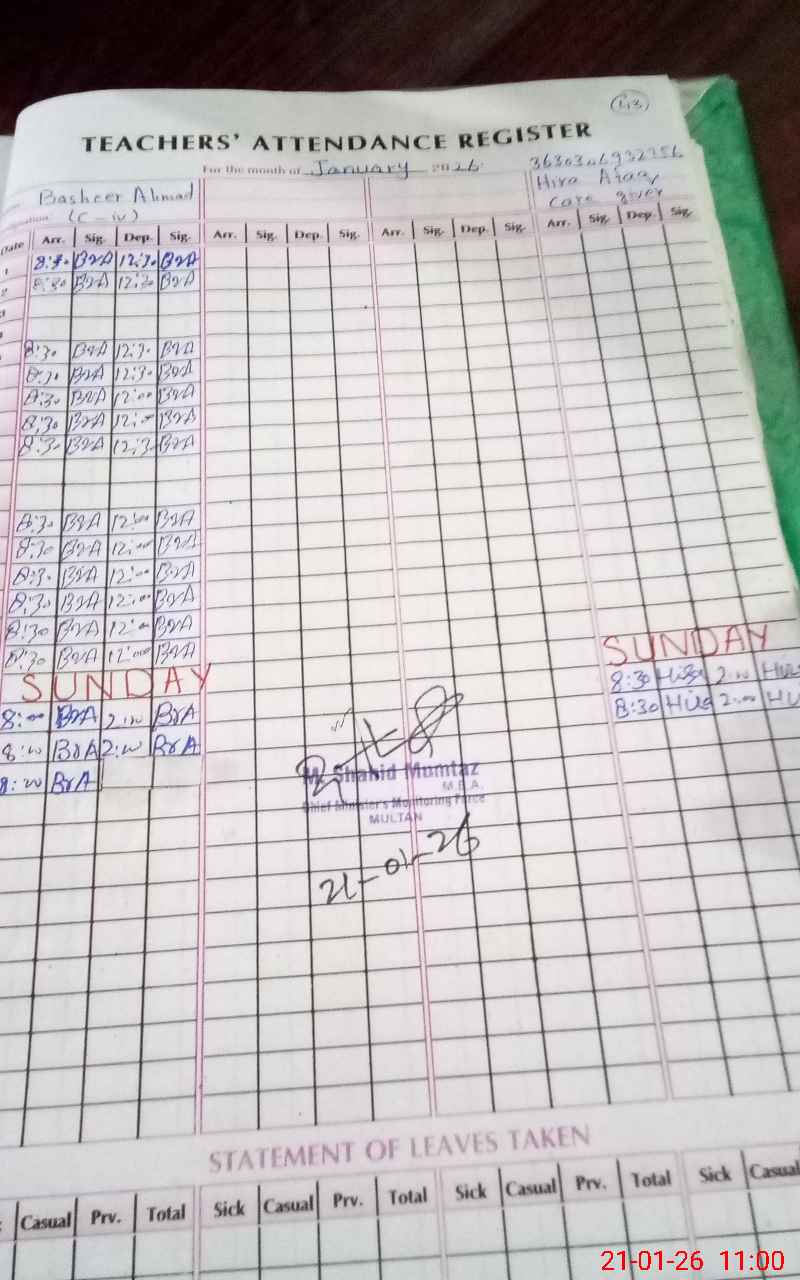 43
TEACHERS' ATTENDANCE REGISTER
For the month of January 2026
Basheer Ahmad
(C-iv)
Hira
care giver
Date Arr. Sig. Dep. Sig. Arr. Sig. Dep. Sig. Arr. Sig. Dep. Sig. Arr. Sig. Dep. Sig.
1 8:30 BrA 12:30 BrA
2 8:30 BrA 12:30 BrA
8:30 BrA 12:30 BrA
8:30 BrA 12:30 BrA
8:30 BrA 12:00 BrA
8:30 BrA 12:00 BrA
8:30 BrA 12:30 BrA
8:30 BrA 12:00 BrA
8:30 BrA 12:00 BrA
8:30 BrA 12:00 BrA
8:30 BrA 12:00 BrA
8:30 BrA 12:00 BrA
8:30 BrA 12:00 BrA
SUNDAY SUNDAY
8:00 BrA 2:00 BrA 8:30 Hira 2:00
8:00 BrA 2:00 BrA 8:30 Hira 2:00
8:00 BrA
M. Shahid Mumtaz
M.E.A.
Chief Minister's Monitoring Force
MULTAN
21-01-26
STATEMENT OF LEAVES TAKEN
Casual Prv. Total Sick Casual Prv. Total Sick Casual Prv. Total Sick Casual
21-01-26 11:00